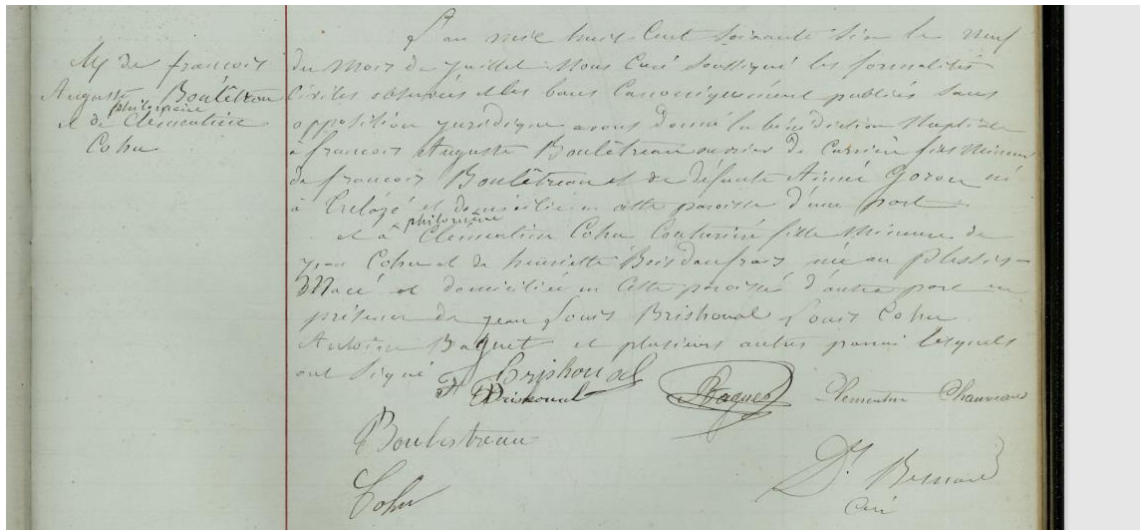 Mg de françois
Auguste Boulêtreau
philomène
et de Clémentine
Cohu
L'an mil huit Cent soixante six le neuf
du mois de juillet Nous Curé soussigné les formalités
Civiles observées et les bans Canoniquement publiés sans
opposition juridique avons donné la bénédiction Nuptiale
à françois Auguste Boulêtreau ouvrier de Carrière fils Mineur
de françois Boulêtreau et de défunte Aimée Goron né
à Trelazé et domicilié en cette paroisse d'une part
philomène
et à Clémentine Cohu Couturière fille Mineure de
jean Cohu et de henriette Boisdaufrais née au plessis-
Macé et domiciliée en Cette paroisse d'autre part en
présence de jean Louis Brishoual Louis Cohu
Antoine Baquet et plusieurs autres parmi lesquels
ont signé
Brishoual
Brishoual
Baquet
Clementine Chauveau
Boulestreau
Cohu
Dt Besnard
Curé